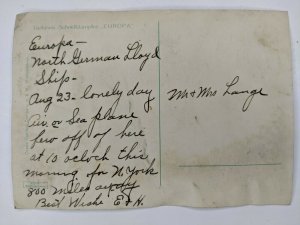 "EUROPA"
Europa —
North German Lloyd
Ship —
Aug 23 – lonely day
Air or Sea plane
flew off of here
at 10 oclock this
morning for N. York
800 miles away
Best Wishes E & H.
Mr & Mrs Lange